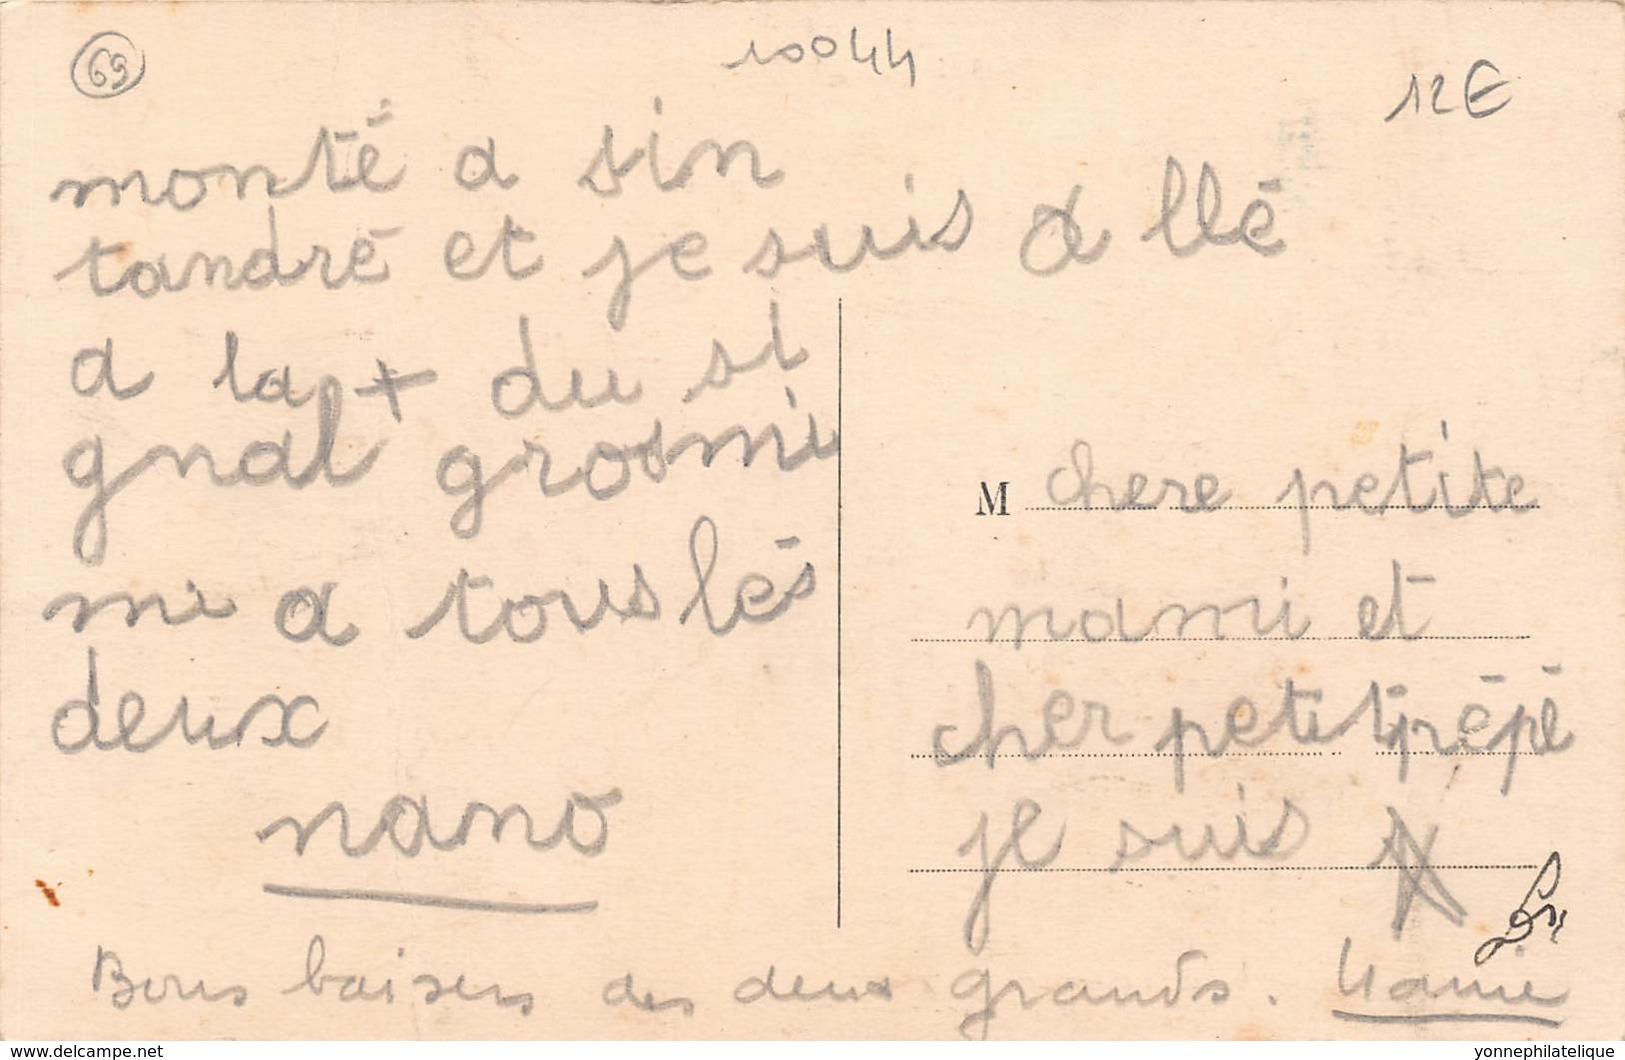 69
10044
12€
M chere petite
mami et
cher petit pépé
je suis
monté a sin
tandré et je suis a llé
a la + du si
gnal grosmi
mi a tous lés
deux
nano
Bons baisers des deux grands. Mamie
www.delcampe.net
yonnephilatelique